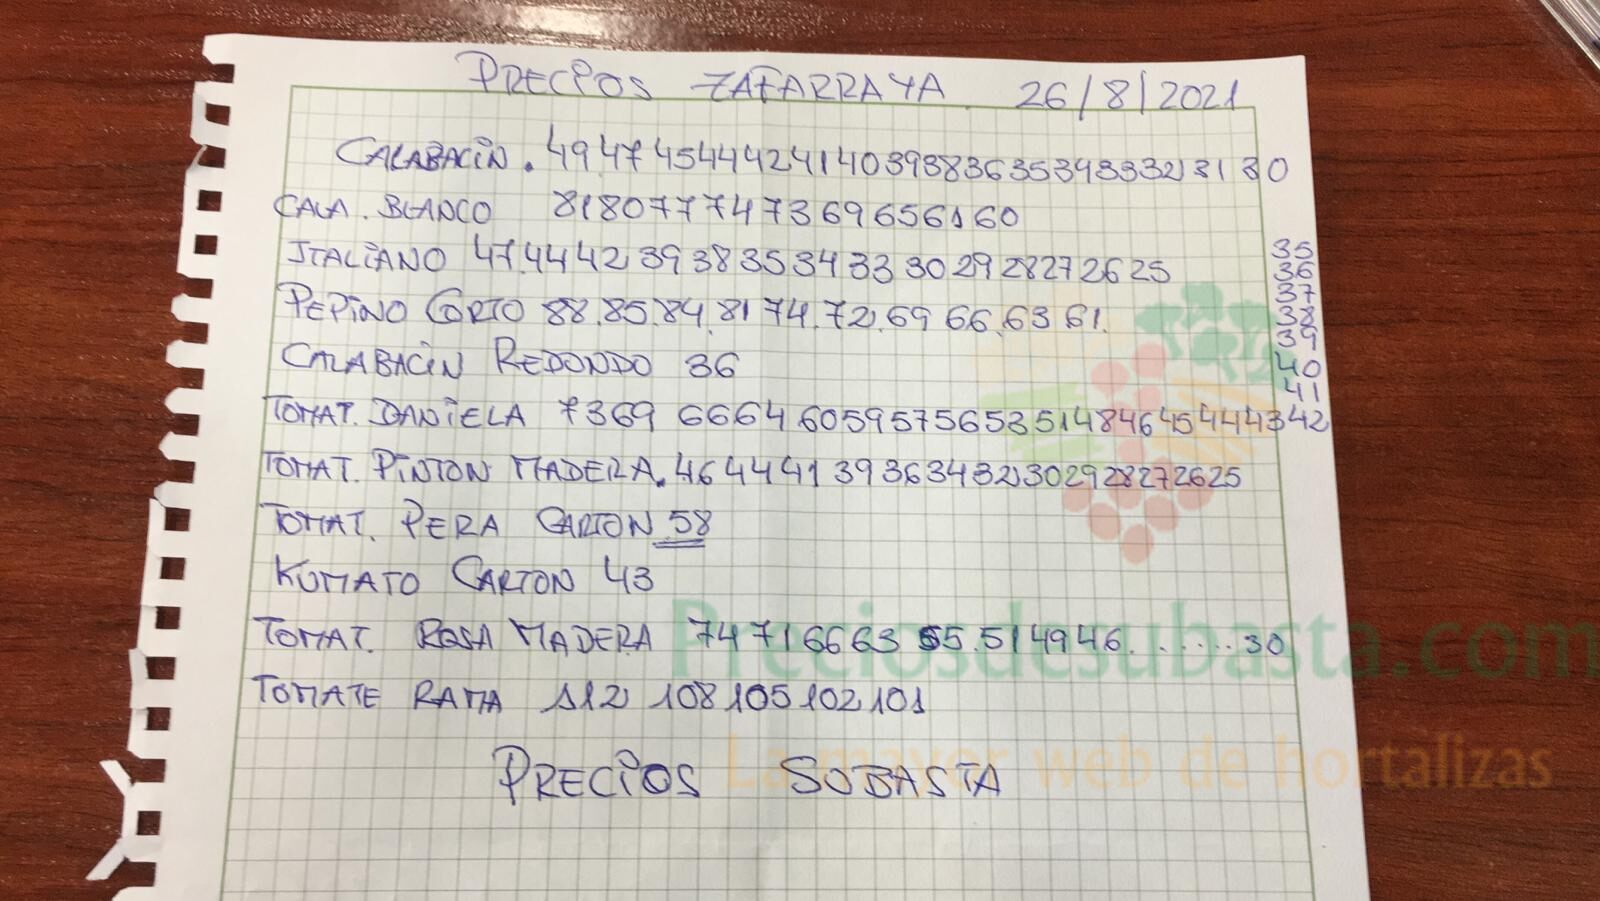 PRECIOS ZAFARRAYA 26/8/2021
CALABACIN. 49.47 45 44 42 41 40 39 38 36 35 34 33 32 31 30
CALA. BLANCO 81 80 77 74 73 69 65 61 60
ITALIANO 47.44 42 39 38 35 34 33 30 29 28 27 26 25
PEPINO CORTO 88.85.84.81 74.72.69 66.63 61.
CALABACIN REDONDO 36
TOMAT. DANIELA 73 69 66 64 60 59 57 56 53 51 48 46 45 44 43 42
41
40
39
38
37
36
35
TOMAT. PINTON MADERA. 46 44 41 39 36 34 32 30 29 28 27 26 25
TOMAT. PERA CARTON 58
KUMATO CARTON 43
TOMAT. ROSA MADERA 74 71 66 63 55.51 49 46.......30
TOMATE RAMA 112 108 105 102 101
PRECIOS SUBASTA
Preciosdesubasta.com
La mayor web de hortalizas